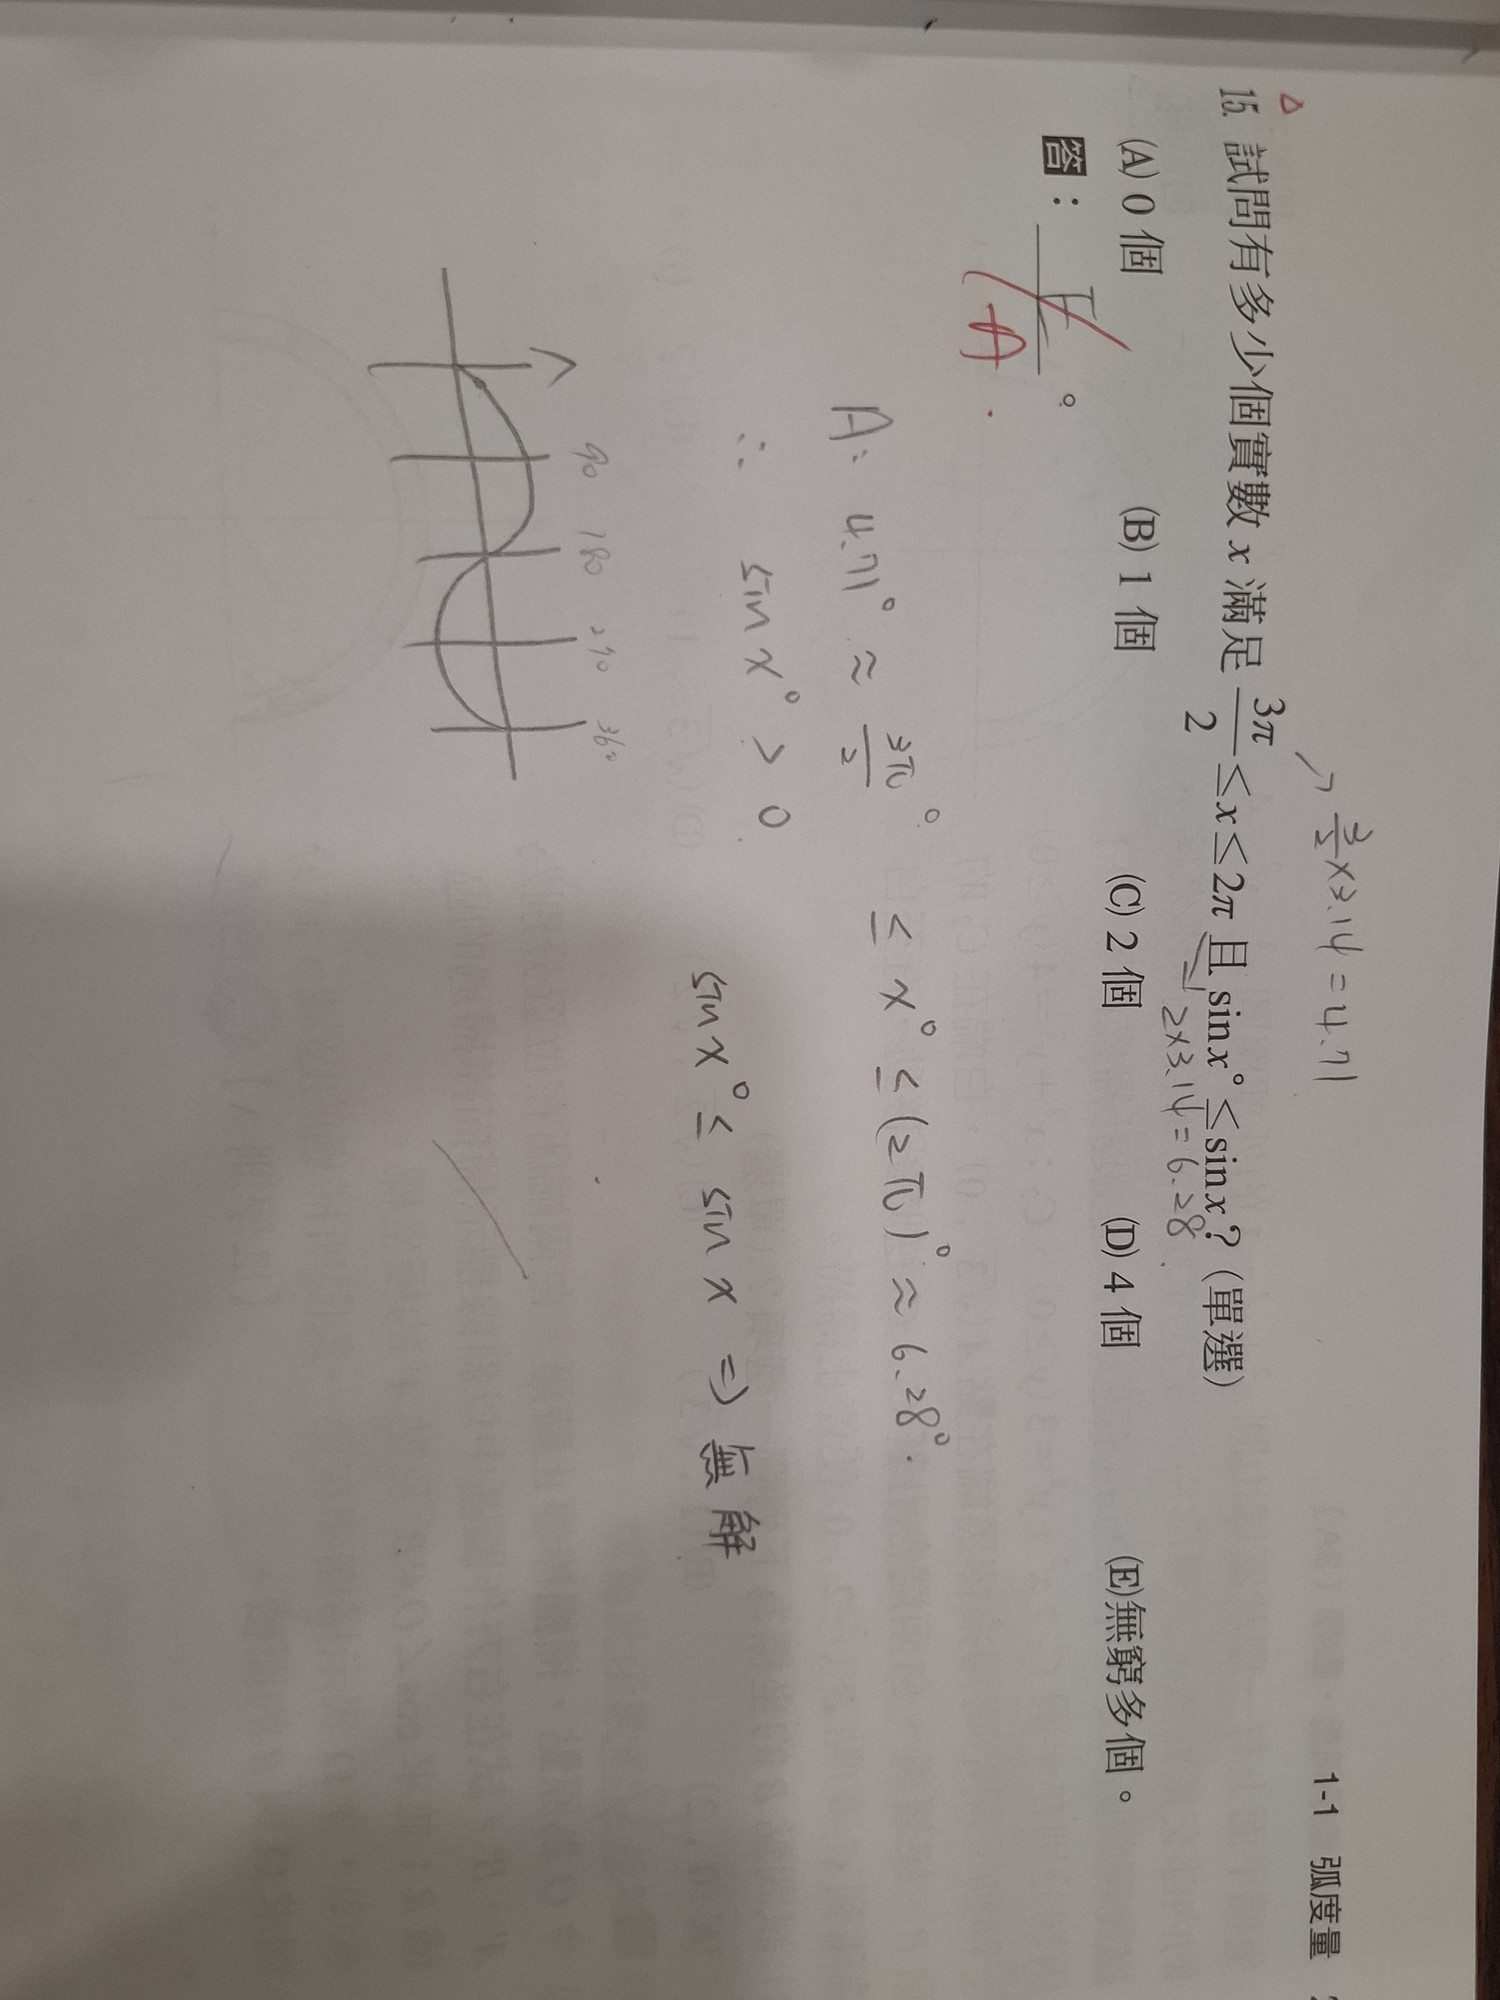 1-1 弧度量
→ 3/2×3.14=4.71
△
15. 試問有多少個實數 x 滿足 3π/2 ≤ x ≤ 2π 且 sin x° ≤ sin x?(單選)
2×3.14=6.28
(A) 0 個 (B) 1 個 (C) 2 個 (D) 4 個 (E)無窮多個。
答:E。
A
A: 4.71° ≈ 3π/2° ≤ x° ≤ (2π)° ≈ 6.28°.
∴ sin x° > 0 sin x° ≤ sin x ⇒ 無解
90 180 270 360